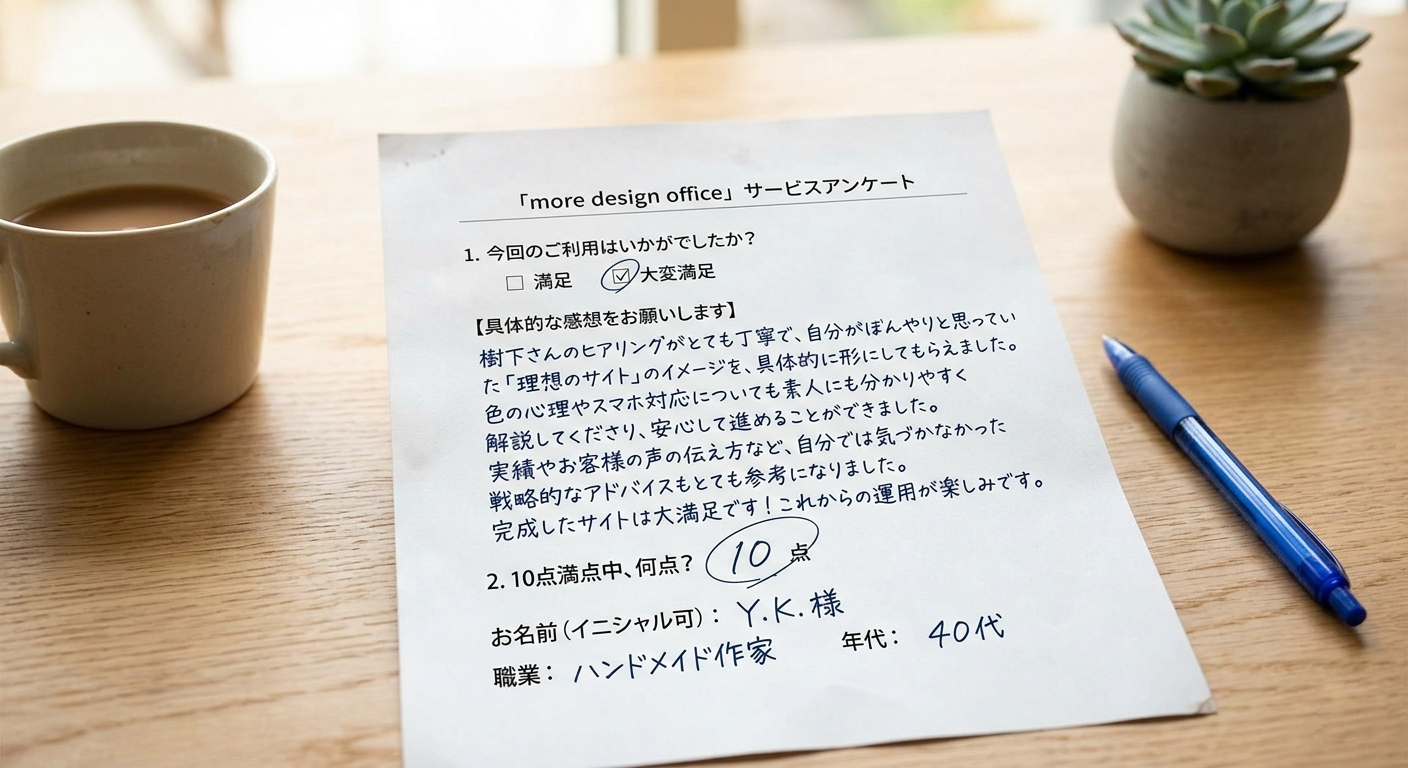 「more design office」サービスアンケート
1. 今回のご利用はいかがでしたか？
□ 満足 ☑ 大変満足
【具体的な感想をお願いします】
樹下さんのヒアリングがとても丁寧で、自分がぼんやりと思ってい
た「理想のサイト」のイメージを、具体的に形にしてもらえました。
色の心理やスマホ対応についても素人にも分かりやすく
解説してくださり、安心して進めることができました。
実績やお客様の声の伝え方など、自分では気づかなかった
戦略的なアドバイスもとても参考になりました。
完成したサイトは大満足です！これからの運用が楽しみです。
2. 10点満点中、何点？ 10 点
お名前（イニシャル可）： Y.K.様
職業： ハンドメイド作家 年代： 40代